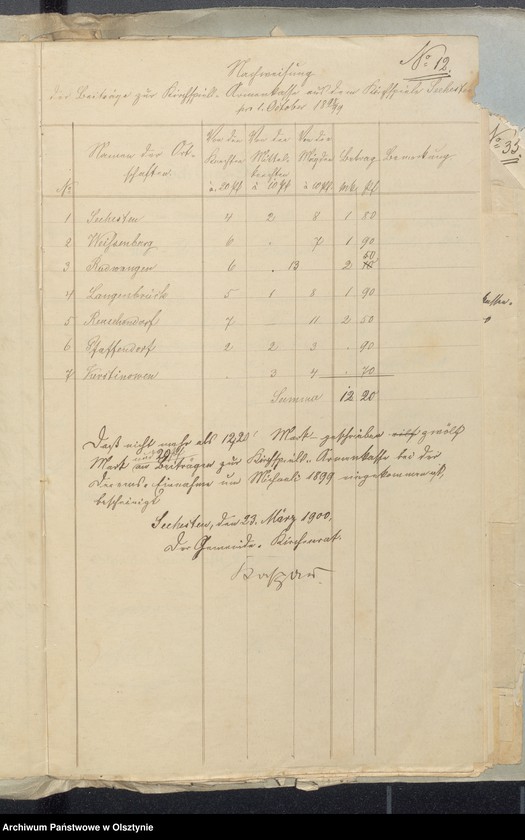 No 12.
Nachweisung
der Beiträge zur Kirchspiels-Armenkasse aus dem Kirchspiele Seehesten
pro 1. October 1898/99
No Namen der Ortschaften. Von den Knechten à 20 Pf Von den Mittelknechten à 10 Pf Von den Mägden à 10 Pf Betrag Mk. Pf. Bemerkung.
1 Seehesten 4 2 8 1. 80
2 Weissenburg 6 . 7 1 90
3 Rudwangen 6 . 13 2 50
4 Langenbrück 5 1 8 1 90
5 Reuschendorf 7 — 11 2 50
6 Pfaffendorf 2 2 3 . 90
7 Kerstinowen . 3 4 . 70
Summa 12 20
Daß nicht mehr als 12,20 Mark geschrieben zwölf
Mark und 20 Pf an Beiträgen zur Kirchspiels-Armenkasse bei der
Decems-Einnahme um Michaeli 1899 eingekommen ist,
bescheinigt
Seehesten, den 23. März 1900.
Der Gemeinde-Kirchenrat.
No 35.
Archiwum Państwowe w Olsztynie